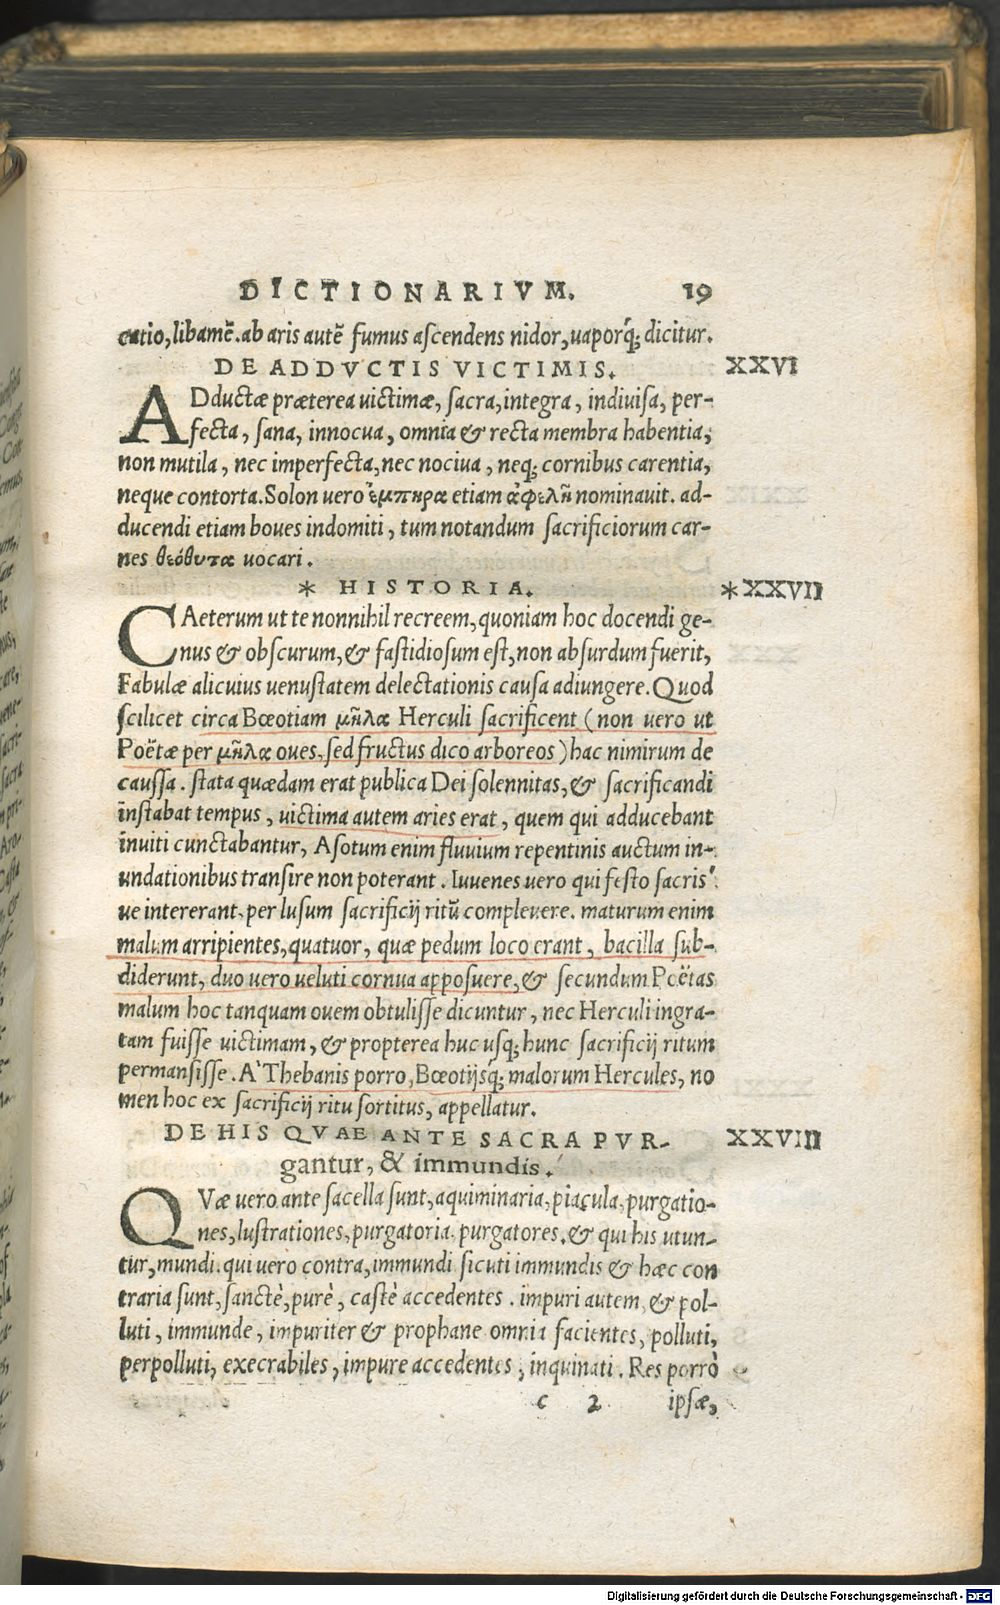 DICTIONARIVM. 19
catio, libamẽ. ab aris autẽ fumus ascendens nidor, uaporq́; dicitur.
DE ADDVCTIS VICTIMIS. XXVI
ADductæ præterea uictimæ, sacra, integra, indiuisa, per-
fecta, sana, innocua, omnia & recta membra habentia,
non mutila, nec imperfecta, nec nociua, neq; cornibus carentia,
neque contorta. Solon uero ἔμπηρα etiam ἀφελῆ nominauit. ad-
ducendi etiam boues indomiti, tum notandum sacrificiorum car-
nes θεόθυτα uocari.
* HISTORIA. * XXVII
CAeterum ut te nonnihil recreem, quoniam hoc docendi ge-
nus & obscurum, & fastidiosum est, non absurdum fuerit,
Fabulæ alicuius uenustatem delectationis causa adiungere. Quod
scilicet circa Bœotiam μῆλα Herculi sacrificent (non uero ut
Poëtæ per μῆλα oues, sed fructus dico arboreos) hac nimirum de
caussa. stata quædam erat publica Dei solennitas, & sacrificandi
instabat tempus, uictima autem aries erat, quem qui adducebant
inuiti cunctabantur, Asotum enim fluuium repentinis auctum in-
undationibus transire non poterant. Iuuenes uero qui festo sacris'
ue intererant, per lusum sacrificij ritũ compleuere. maturum enim
malum arripientes, quatuor, quæ pedum loco erant, bacilla sub-
diderunt, duo uero ueluti cornua apposuere, & secundum Poëtas
malum hoc tanquam ouem obtulisse dicuntur, nec Herculi ingra-
tam fuisse uictimam, & propterea huc usq; hunc sacrificij ritum
permansisse. A' Thebanis porro, Bœotijsq́; malorum Hercules, no
men hoc ex sacrificij ritu sortitus, appellatur.
DE HIS QVAE ANTE SACRA PVR- XXVIII
gantur, & immundis.
QVæ uero ante sacella sunt, aquiminaria, piacula, purgatio-
nes, lustrationes, purgatoria, purgatores, & qui his utun-
tur, mundi. qui uero contra, immundi sicuti immundis & hæc con
traria sunt, sanctè, purè, castè accedentes. impuri autem & pol-
luti, immunde, impuriter & prophane omnia facientes, polluti,
perpolluti, execrabiles, impure accedentes, inquinati. Res porrò
c 2 ipsæ,
Digitalisierung gefördert durch die Deutsche Forschungsgemeinschaft - DFG